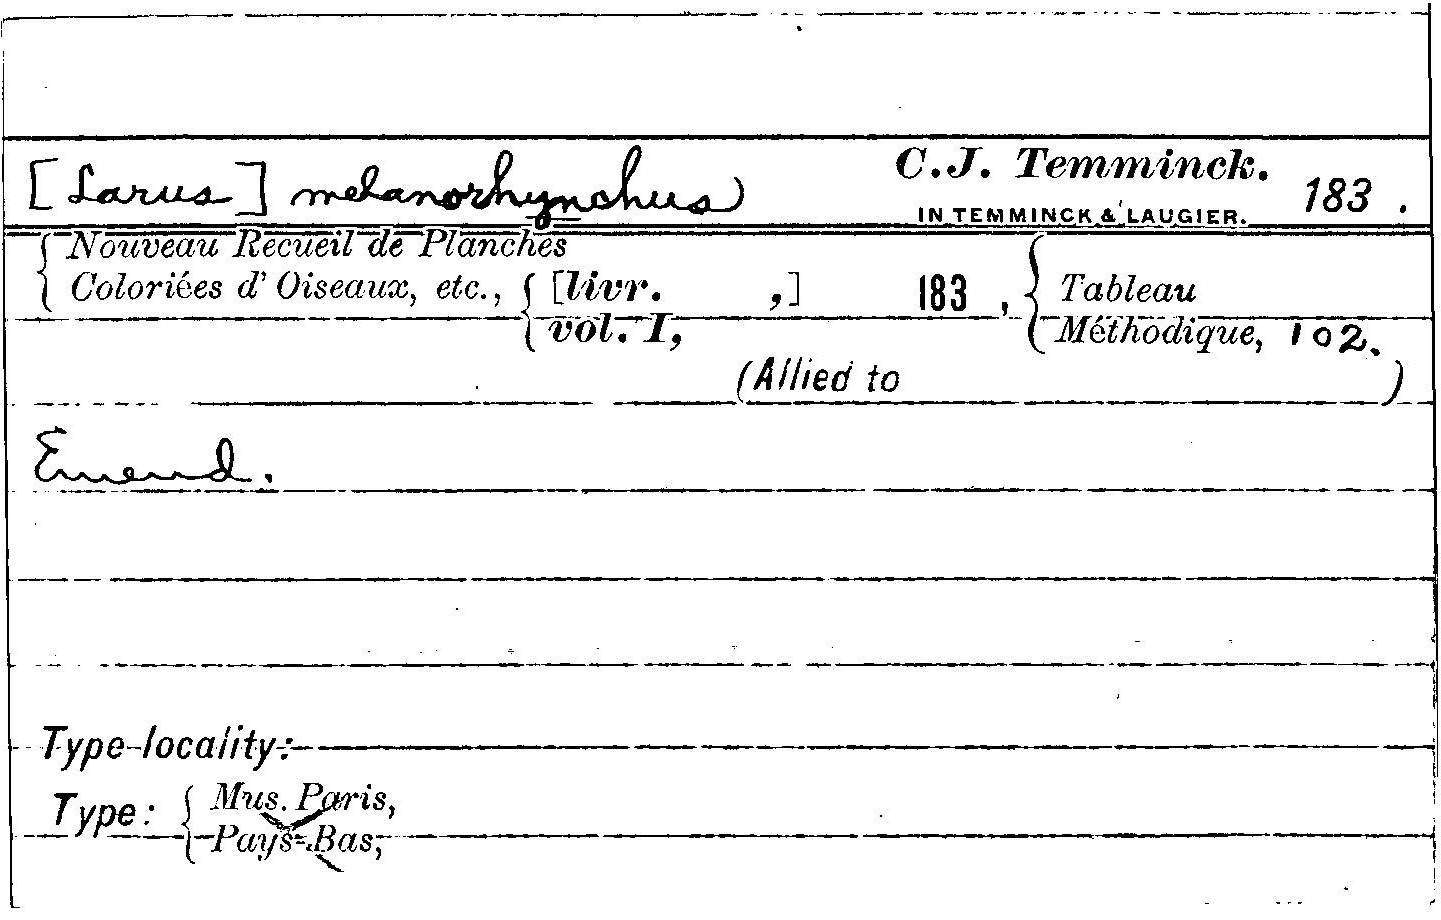 [Larus] melanorhynchus C.J. Temminck. 183 .
IN TEMMINCK & LAUGIER.
Nouveau Recueil de Planches
Coloriées d' Oiseaux, etc., [livr. ,] 183 , Tableau
vol. I, Méthodique, 102.
(Allied to )
Emend.
Type-locality:
Type: Mus. Paris,
Pays-Bas,